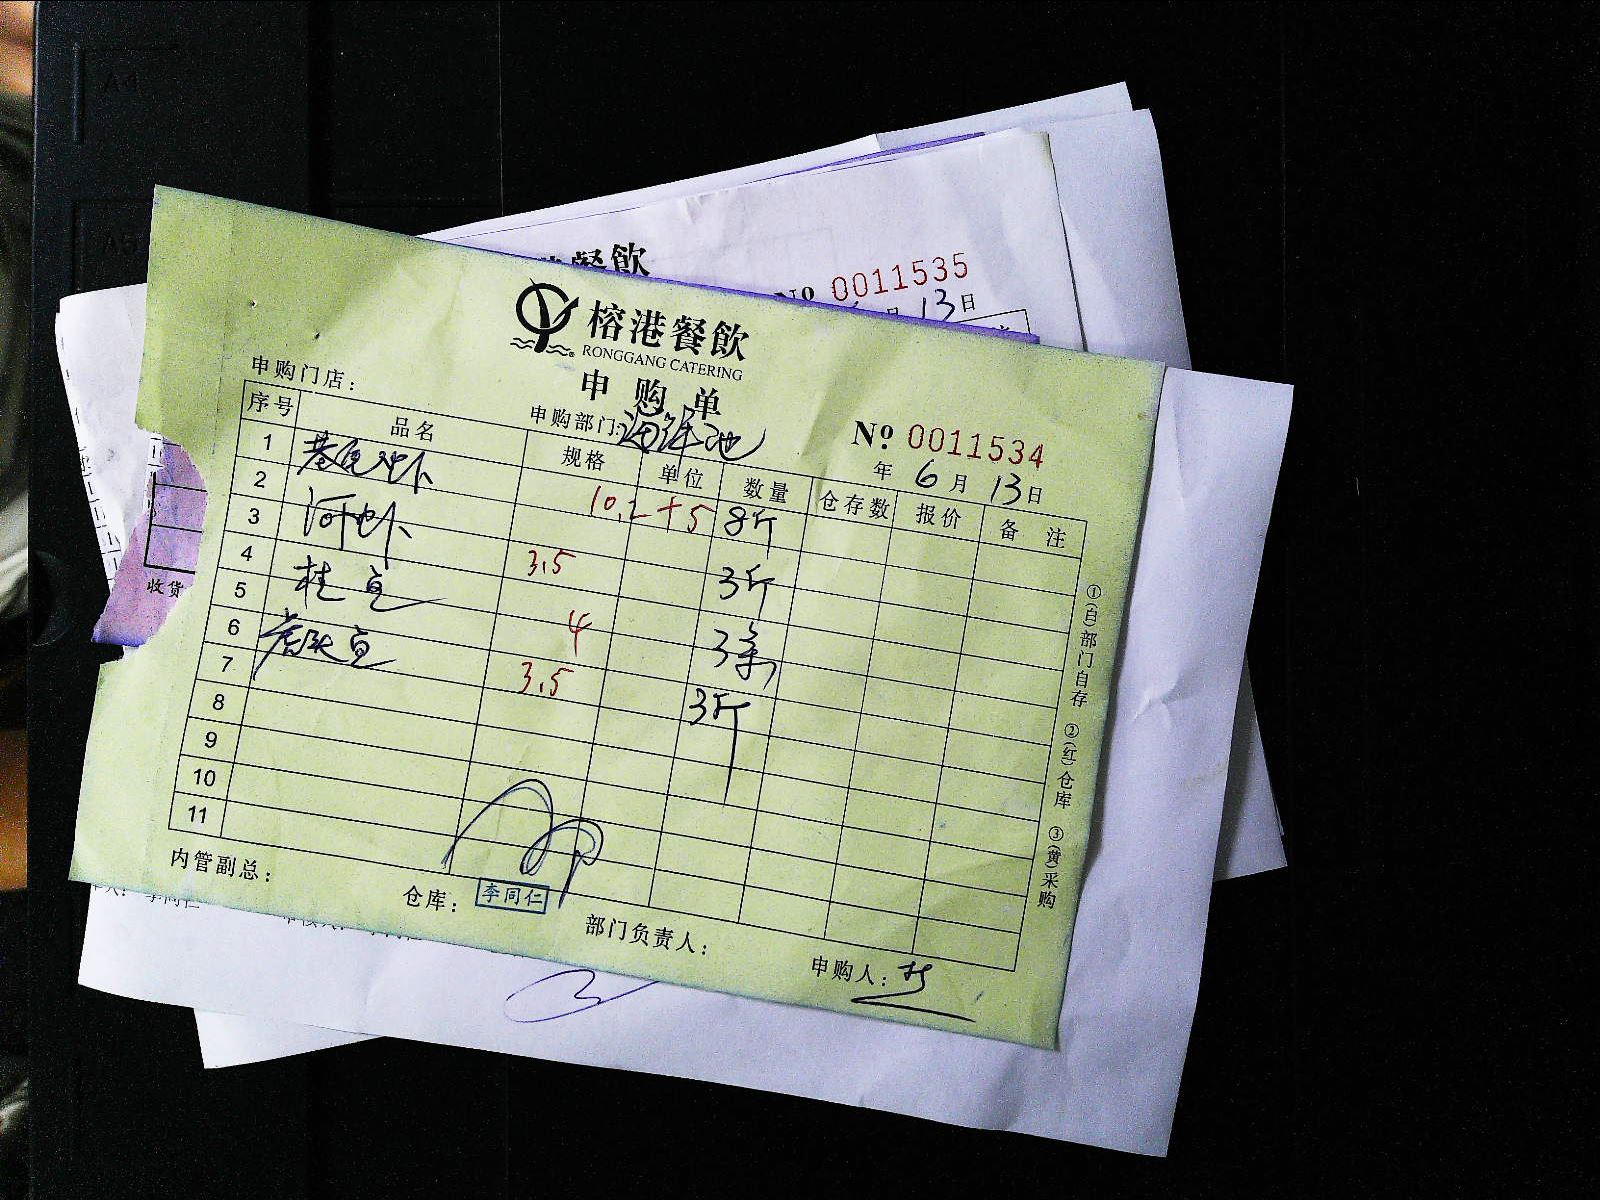 A4
A5
餐飲
Nº 0011535
月 13日
榕港餐飲
RONGGANG CATERING
申购单
申购门店：
申购部门：海鲜池
Nº 0011534
年 6月 13日
序号 品名 规格 单位 数量 仓存数 报价 备注
1 基围虾 10.2+5 8斤
2
3 河虾 3.5 3斤
4
5 桂鱼 4 3条
6
7 3.5 3斤
8
9
10
11
①(白)部门自存 ②(红)仓库 ③(黄)采购
内管副总：
仓库： 李同仁
部门负责人：
申购人：
收货